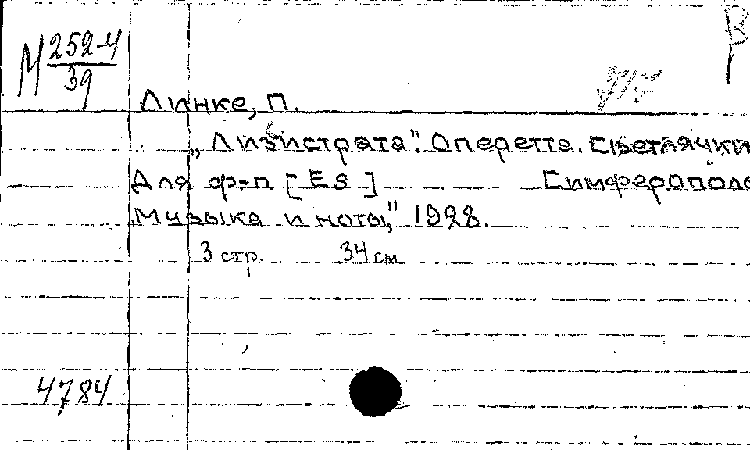 М 252-4
39
Линке, П.
„Лизистрата". Оперетта. Светлячки
Для ф-п [Es] Симферополь
Музыка и ноты," 1928.
3 стр. 34 см
4784